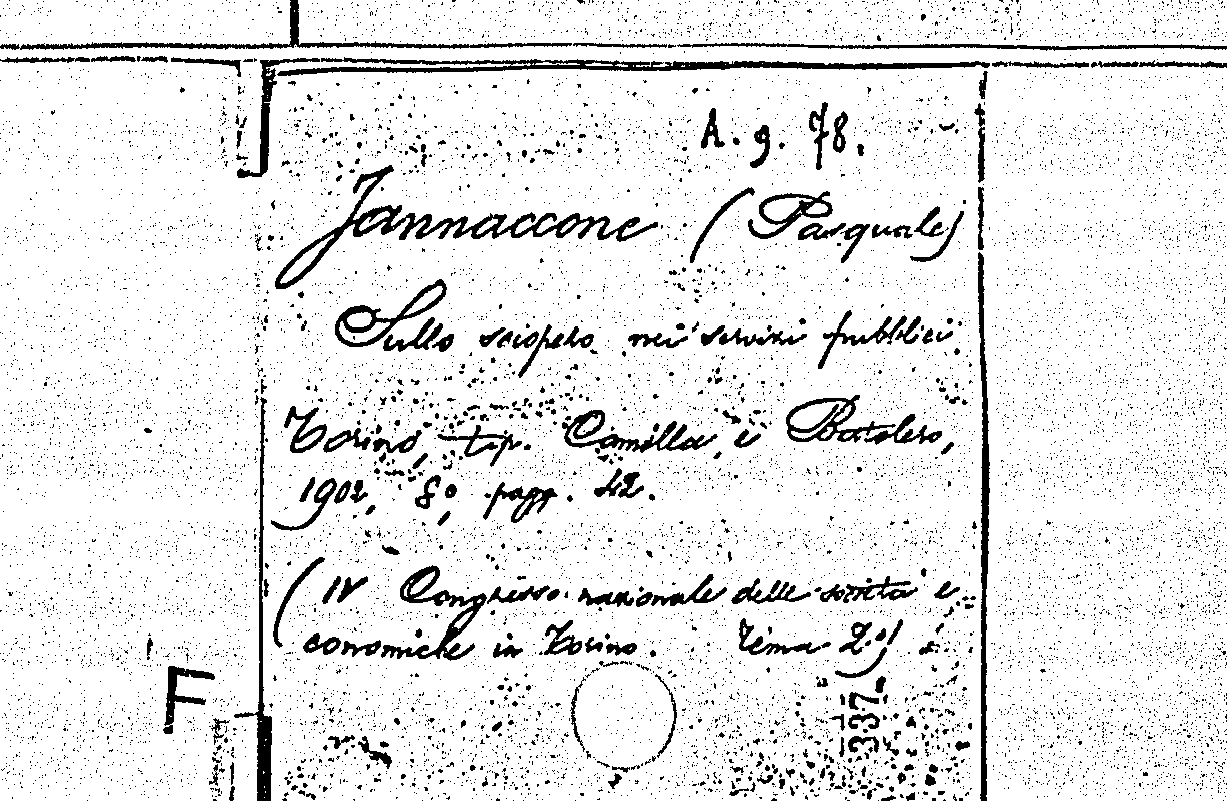 A. 9. 78.
Jannaccone (Pasquale)
Sullo sciopero nei servizi pubblici
Torino, tip. Camilla e Bertolero,
1902, 8º, pagg. 42.
(IV Congresso nazionale delle società e-
conomiche in Torino. Tema 2º)
337
F